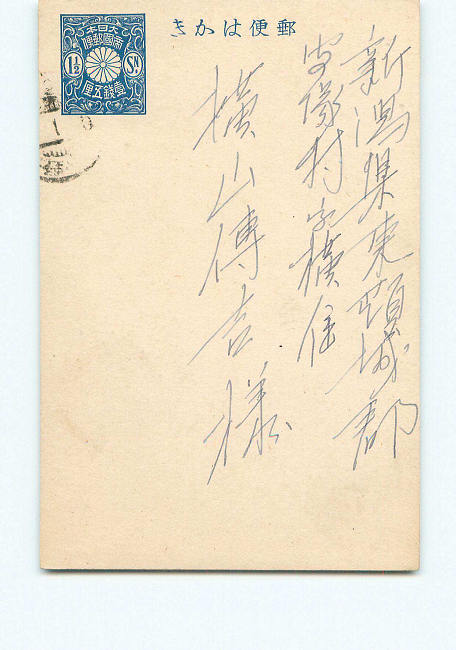 郵便はかき
大日本
帝國郵便
1½ SN.
壹銭五厘
新潟縣東頸城郡
安塚村字横住
横山傳吉様